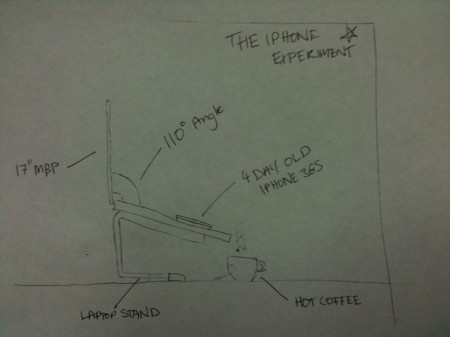 THE IPHONE
EXPERIMENT
110° Angle
17" MBP
4 DAY OLD
IPHONE 3GS
LAPTOP STAND
HOT COFFEE